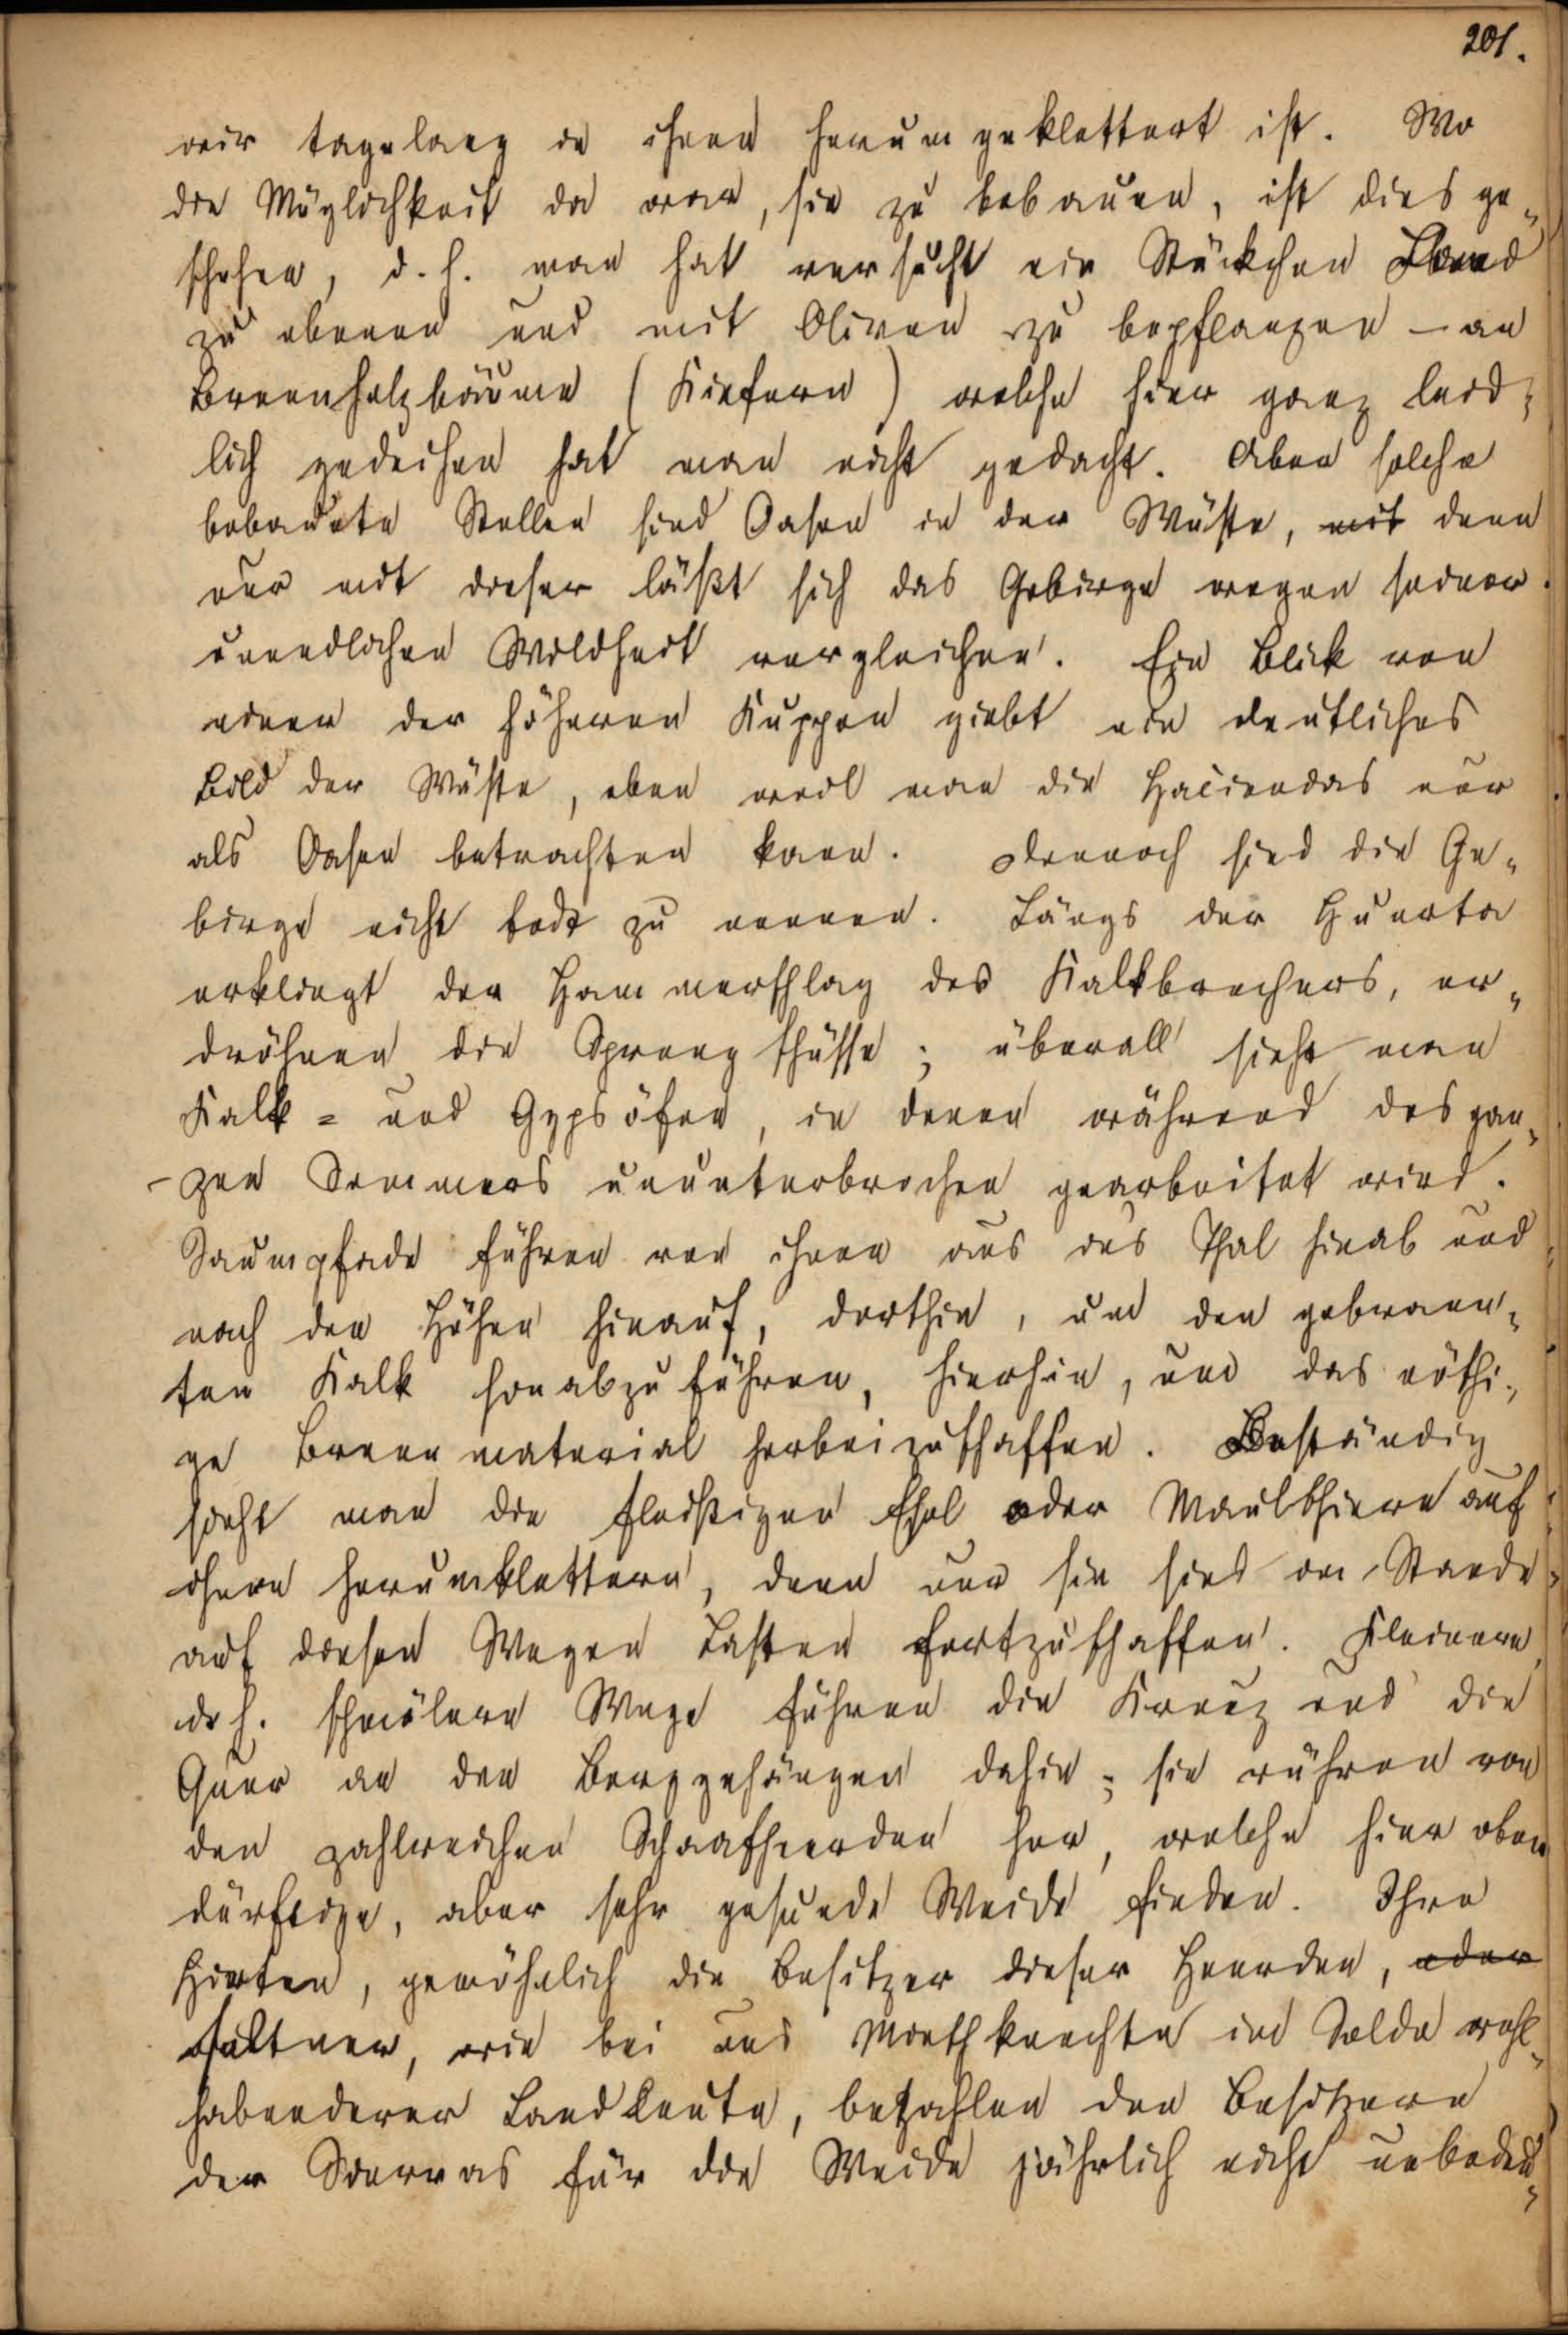 201.
wir tagelang in ihnen herumgeklettert ist. Wo
die Möglichkeit da war, sie zu bebauen, ist dies ge-
schehen, d. h. man hat versucht ein Stückchen Land
zu ebenen und mit Oliven zu bepflanzen – an
Brennholzbäume (Kiefern) welche hier ganz leid-
lich gedeihen hat man nicht gedacht. Aber solche
bebaute Stellen sind Oasen in der Wüste, mit denn
nur mit dieser läßt sich das Gebirge wegen seiner
unendlichen Wildheit vergleichen. Ein Blick von
einer der höheren Kuppen giebt ein deutliches
Bild der Wüste, eben weil man die Haciendas nur
als Oasen betrachten kann. Dennoch sind die Ge-
birge nicht todt zu nennen. Längs der Huerta
erklingt der Hammerschlag des Kalkbrechers, er-
dröhnen die Sprengschüsse; überall sieht man
Kalk- und Gypsöfen, in denen während des gan-
zen Sommers ununterbrochen gearbeitet wird.
Saumpfade führen von ihnen aus das Thal hinab und
nach den Höhen hinauf, dorthin, um den gebrann-
ten Kalk hinabzuführen, hierhin, um das nöthi-
ge Brennmaterial herbeizuschaffen. Beständig
sieht man die fleißigen Esel oder Maulthiere auf
ihnen herumklettern, denn nur sie sind im Stande
auf diesen Wegen Lasten fortzuschaffen. Kleinere
d. h. schmälere Wege führen die Kreuz und die
Quer an den Berggehängen dahin; sie rühren von
den zahlreichen Schaafheerden her, welche hier oben
dürftige, aber sehr gesunde Weide finden. Ihre
Hirten, gewöhnlich die Besitzer dieser Heerden, oder
seltner, wie bei uns Miethknechte im Solde wohl-
habenderer Landleute, bezahlen den Besitzern
der Sierras für die Weide jährlich nicht unbedeu-